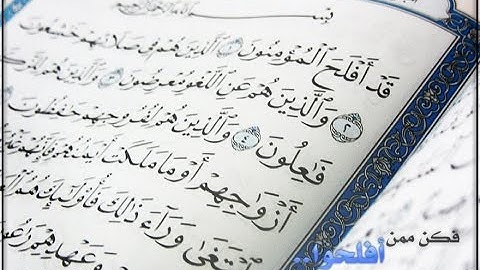 بِسْمِ ٱللَّهِ ٱلرَّحْمَٰنِ ٱلرَّحِيمِ
قَدْ أَفْلَحَ ٱلْمُؤْمِنُونَ ١ ٱلَّذِينَ هُمْ فِى صَلَاتِهِمْ خَٰشِعُونَ
٢ وَٱلَّذِينَ هُمْ عَنِ ٱللَّغْوِ مُعْرِضُونَ ٣ وَٱلَّذِينَ هُمْ
فَٰعِلُونَ ٤ وَٱلَّذِينَ هُمْ لِفُرُوجِهِمْ حَٰفِظُونَ
أَزْوَٰجِهِمْ أَوْ مَا مَلَكَتْ أَيْمَٰنُهُمْ فَإِنَّهُمْ
ٱبْتَغَىٰ وَرَآءَ ذَٰلِكَ فَأُو۟لَٰٓئِكَ هُمُ
وَعَهْدِهِمْ رَٰعُونَ
فكن ممن
أفلحوا..